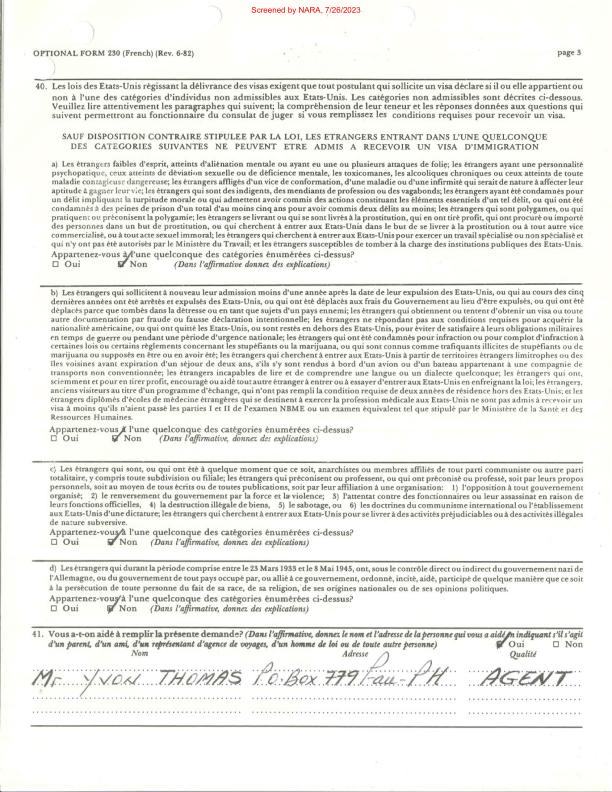 Screened by NARA, 7/26/2023
OPTIONAL FORM 230 (French) (Rev. 6-82) page 3
40. Les lois des Etats-Unis régissant la délivrance des visas exigent que tout postulant qui sollicite un visa déclare si il ou elle appartient ou
non à l'une des catégories d'individus non admissibles aux Etats-Unis. Les catégories non admissibles sont décrites ci-dessous.
Veuillez lire attentivement les paragraphes qui suivent; la compréhension de leur teneur et les réponses données aux questions qui
suivent permettront au fonctionnaire du consulat de juger si vous remplissez les conditions requises pour recevoir un visa.
SAUF DISPOSITION CONTRAIRE STIPULEE PAR LA LOI, LES ETRANGERS ENTRANT DANS L'UNE QUELCONQUE
DES CATEGORIES SUIVANTES NE PEUVENT ETRE ADMIS A RECEVOIR UN VISA D'IMMIGRATION
a) Les étrangers faibles d'esprit, atteints d'aliénation mentale ou ayant eu une ou plusieurs attaques de folie; les étrangers ayant une personnalité
psychopatique, ceux atteints de déviation sexuelle ou de déficience mentale, les toxicomanes, les alcooliques chroniques ou ceux atteints de toute
maladie contagieuse dangereuse; les étrangers affligés d'un vice de conformation, d'une maladie ou d'une infirmité qui serait de nature à affecter leur
aptitude à gagner leur vie; les étrangers qui sont des indigents, des mendiants de profession ou des vagabonds; les étrangers ayant été condamnés pour
un délit impliquant la turpitude morale ou qui admettent avoir commis des actions constituant les éléments essentiels d'un tel délit, ou qui ont été
condamnés à des peines de prison d'un total d'au moins cinq ans pour avoir commis deux délits au moins; les étrangers qui sont polygames, ou qui
pratiquent ou préconisent la polygamie; les étrangers se livrant ou qui se sont livrés à la prostitution, qui en ont tiré profit, qui ont procuré ou importé
des personnes dans un but de prostitution, ou qui cherchent à entrer aux Etats-Unis dans le but de se livrer à la prostitution ou à tout autre vice
commercialisé, ou à tout acte sexuel immoral; les étrangers qui cherchent à entrer aux Etats-Unis pour exercer un travail spécialisé ou non spécialisé et
qui n'y ont pas été autorisés par le Ministère du Travail; et les étrangers susceptibles de tomber à la charge des institutions publiques des Etats-Unis.
Appartenez-vous à l'une quelconque des catégories énumérées ci-dessus?
☐ Oui ☑ Non (Dans l'affirmative donnez des explications)
b) Les étrangers qui sollicitent à nouveau leur admission moins d'une année après la date de leur expulsion des Etats-Unis, ou qui au cours des cinq
dernières années ont été arrêtés et expulsés des Etats-Unis, ou qui ont été déplacés aux frais du Gouvernement au lieu d'être expulsés, ou qui ont été
déplacés parce que tombés dans la détresse ou en tant que sujets d'un pays ennemi; les étrangers qui obtiennent ou tentent d'obtenir un visa ou toute
autre documentation par fraude ou fausse déclaration intentionnelle; les étrangers ne répondant pas aux conditions requises pour acquérir la
nationalité américaine, ou qui ont quitté les Etats-Unis, ou sont restés en dehors des Etats-Unis, pour éviter de satisfaire à leurs obligations militaires
en temps de guerre ou pendant une période d'urgence nationale; les étrangers qui ont été condamnés pour infraction ou pour complot d'infraction à
certaines lois ou certains règlements concernant les stupéfiants ou la marijuana, ou qui sont connus comme trafiquants illicites de stupéfiants ou de
marijuana ou supposés en être ou en avoir été; les étrangers qui cherchent à entrer aux Etats-Unis à partir de territoires étrangers limitrophes ou des
îles voisines avant expiration d'un séjour de deux ans, s'ils s'y sont rendus à bord d'un avion ou d'un bateau appartenant à une compagnie de
transports non conventionnée; les étrangers incapables de lire et de comprendre une langue ou un dialecte quelconque; les étrangers qui ont,
sciemment et pour en tirer profit, encouragé ou aidé tout autre étranger à entrer ou à essayer d'entrer aux Etats-Unis en enfreignant la loi; les étrangers,
anciens visiteurs au titre d'un programme d'échange, qui n'ont pas rempli la condition requise de deux années de résidence hors des Etats-Unis; et les
étrangers diplômés d'écoles de médecine étrangères qui se destinent à exercer la profession médicale aux Etats-Unis ne sont pas admis à recevoir un
visa à moins qu'ils n'aient passé les parties I et II de l'examen NBME ou un examen équivalent tel que stipulé par le Ministère de la Santé et des
Ressources Humaines.
Appartenez-vous à l'une quelconque des catégories énumérées ci-dessus?
☐ Oui ☑ Non (Dans l'affirmative, donnez des explications)
c) Les étrangers qui sont, ou qui ont été à quelque moment que ce soit, anarchistes ou membres affiliés de tout parti communiste ou autre parti
totalitaire, y compris toute subdivision ou filiale; les étrangers qui préconisent ou professent, ou qui ont préconisé ou professé, soit par leurs propos
personnels, soit au moyen de tous écrits ou de toutes publications, soit par leur affiliation à une organisation: 1) l'opposition à tout gouvernement
organisé; 2) le renversement du gouvernement par la force et la violence; 3) l'attentat contre des fonctionnaires ou leur assassinat en raison de
leurs fonctions officielles, 4) la destruction illégale de biens, 5) le sabotage, ou 6) les doctrines du communisme international ou l'établissement
aux Etats-Unis d'une dictature; les étrangers qui cherchent à entrer aux Etats-Unis pour se livrer à des activités préjudiciables ou à des activités illégales
de nature subversive.
Appartenez-vous à l'une quelconque des catégories énumérées ci-dessus?
☐ Oui ☑ Non (Dans l'affirmative, donnez des explications)
d) Les étrangers qui durant la période comprise entre le 23 Mars 1933 et le 8 Mai 1945, ont, sous le contrôle direct ou indirect du gouvernement nazi de
l'Allemagne, ou du gouvernement de tout pays occupé par, ou allié à ce gouvernement, ordonné, incité, aidé, participé de quelque manière que ce soit
à la persécution de toute personne du fait de sa race, de sa religion, de ses origines nationales ou de ses opinions politiques.
Appartenez-vous à l'une quelconque des catégories énumérées ci-dessus?
☐ Oui ☑ Non (Dans l'affirmative, donnez des explications)
41. Vous a-t-on aidé à remplir la présente demande? (Dans l'affirmative, donnez le nom et l'adresse de la personne qui vous a aidé, en indiquant s'il s'agit
d'un parent, d'un ami, d'un représentant d'agence de voyages, d'un homme de loi ou de toute autre personne) ☑ Oui ☐ Non
Nom Adresse Qualité
Mr YVON THOMAS P.O. Box 779 Pau-PH AGENT